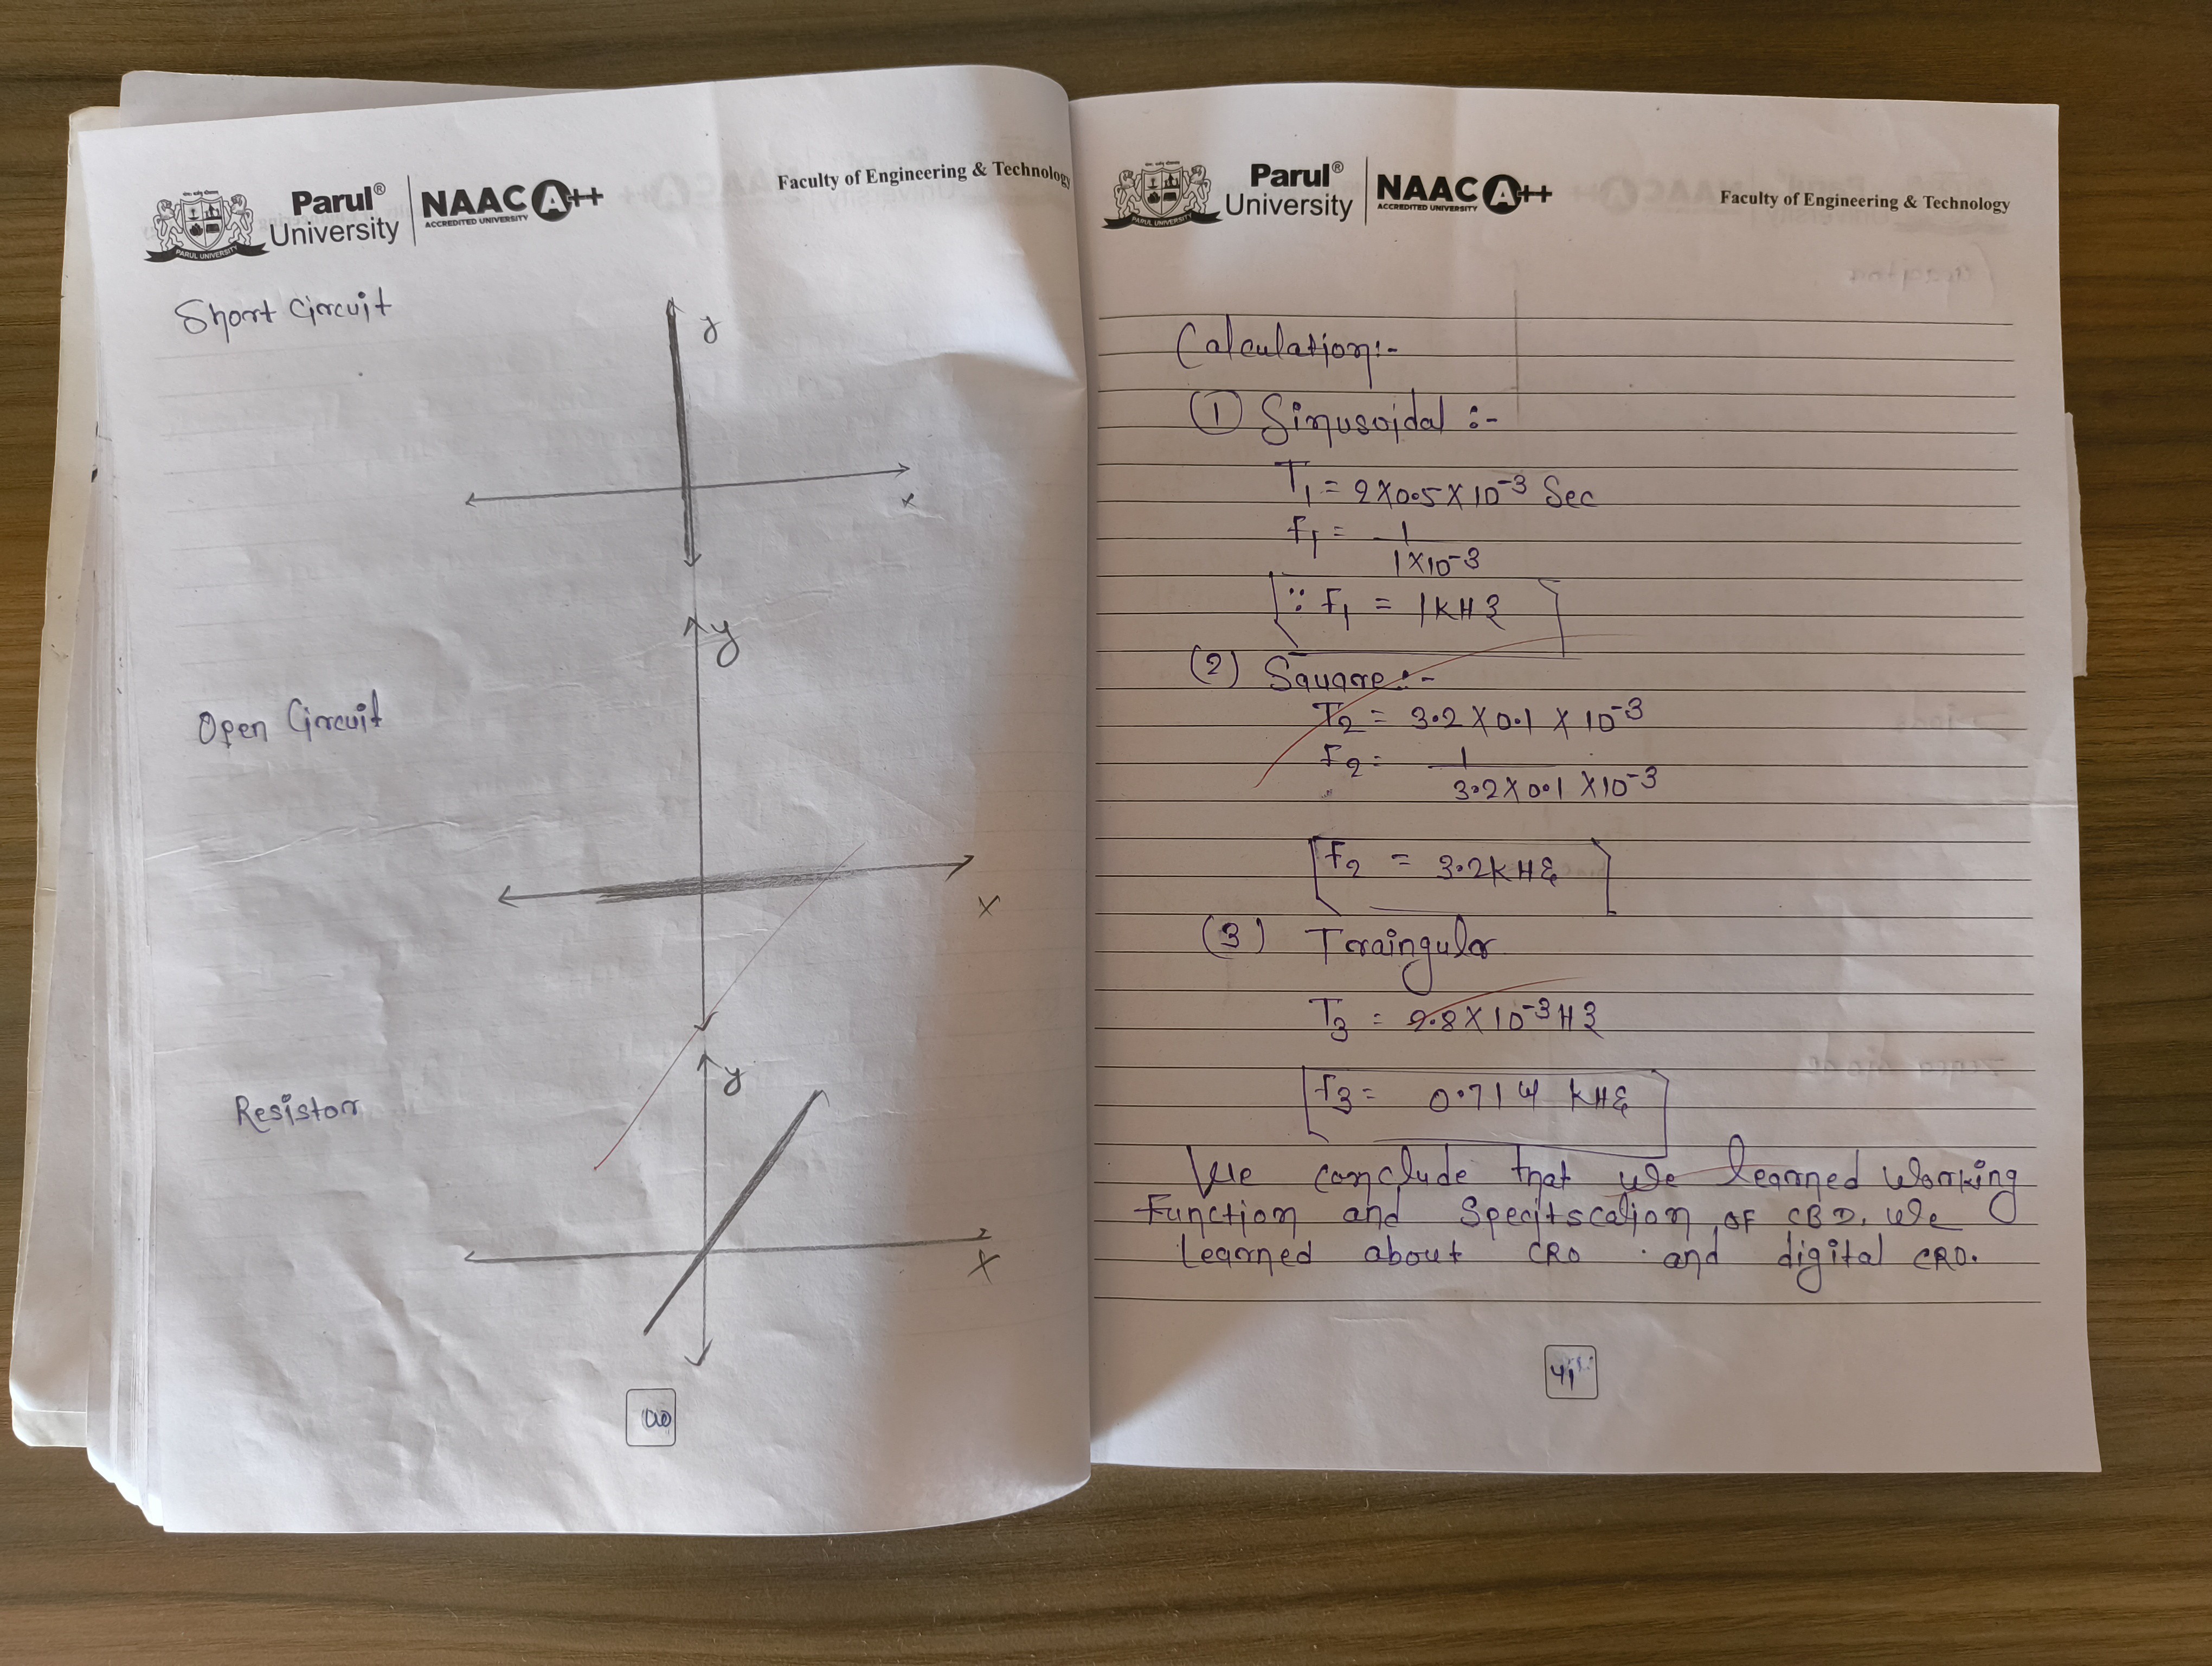 Parul®
University
NAAC A++
ACCREDITED UNIVERSITY
PARUL UNIVERSITY
Faculty of Engineering & Technology
Short Circuit
y
x
Open Circuit
y
x
Resistor
y
x
Parul®
University
NAAC A++
ACCREDITED UNIVERSITY
PARUL UNIVERSITY
Faculty of Engineering & Technology
Calculation:-
① Sinusoidal :-
T1 = 2X0.5X10-3 Sec
f1 = 1
1X10-3
∵ F1 = 1KHz
(2) Square:-
T2 = 3.2X0.1 X 10-3
F2 = 1
3.2X0.1 X10-3
F2 = 3.2KHz
(3) Traingular
T3 = 2.8X10-3Hz
F3 = 0.714 KHz
We conclude that we learned working
Function and Specitscation of CBD. We
learned about CRO and digital CRO.
41